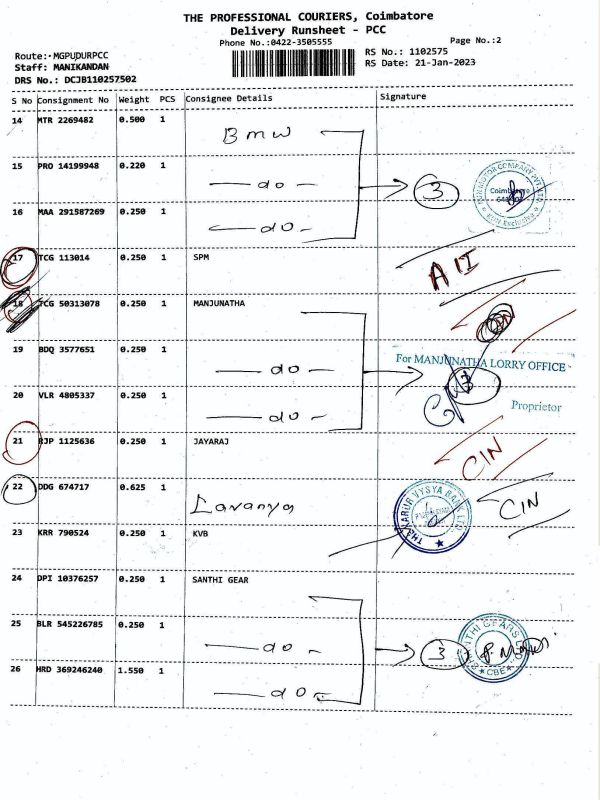 THE PROFESSIONAL COURIERS, Coimbatore
Delivery Runsheet - PCC
Phone No.:0422-3505555
Page No.:2
Route:- MGPUDURPCC
RS No.: 1102575
Staff: MANIKANDAN
RS Date: 21-Jan-2023
DRS No.: DCJB110257502
S No Consignment No Weight PCS Consignee Details Signature
14 MTR 2269482 0.500 1 Bmw
15 PRO 14199948 0.220 1 do 3
16 MAA 291587269 0.250 1 do
17 TCG 113014 0.250 1 SPM
18 TCG 50313078 0.250 1 MANJUNATHA
19 BDQ 3577651 0.250 1 do
For MANJUNATHA LORRY OFFICE
3
20 VLR 4805337 0.250 1 do
Proprietor
21 RJP 1125636 0.250 1 JAYARAJ CIN
22 DDG 674717 0.625 1 Lavanya CIN
THE KARUR VYSYA BANK LTD
23 KRR 790524 0.250 1 KVB
24 DPI 10376257 0.250 1 SANTHI GEAR
25 BLR 545226785 0.250 1 do 3
CBE
26 HRD 369246240 1.550 1 do